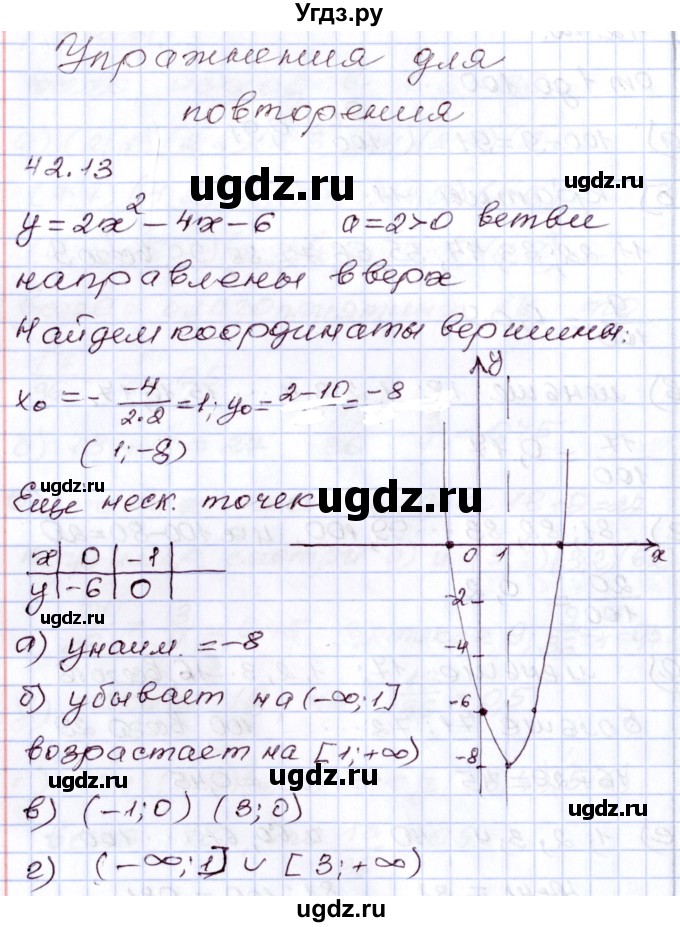 Угдз.ру
Упражнения для
повторения
42.13
ugdz.ru
y = 2x² - 4x - 6 a = 2 > 0 ветви
направлены вверх
Найдем координаты вершины:
x₀ = - -4/2·2 = 1; y₀ = 2-10 = -8
(1; -8)
ugdz.ru
Еще неск. точек
ugdz.ru
x 0 -1
y -6 0
ugdz.ru
y
0 1 x
-2
-4
-6
-8
а) yнаим. = -8
б) убывает на (-∞; 1]
ugdz.ru
возрастает на [1; +∞)
ugdz.ru
ugdz.ru
в) (-1; 0) (3; 0)
г) (-∞; 1] ∪ [3; +∞)
ugdz.ru
ugdz.ru